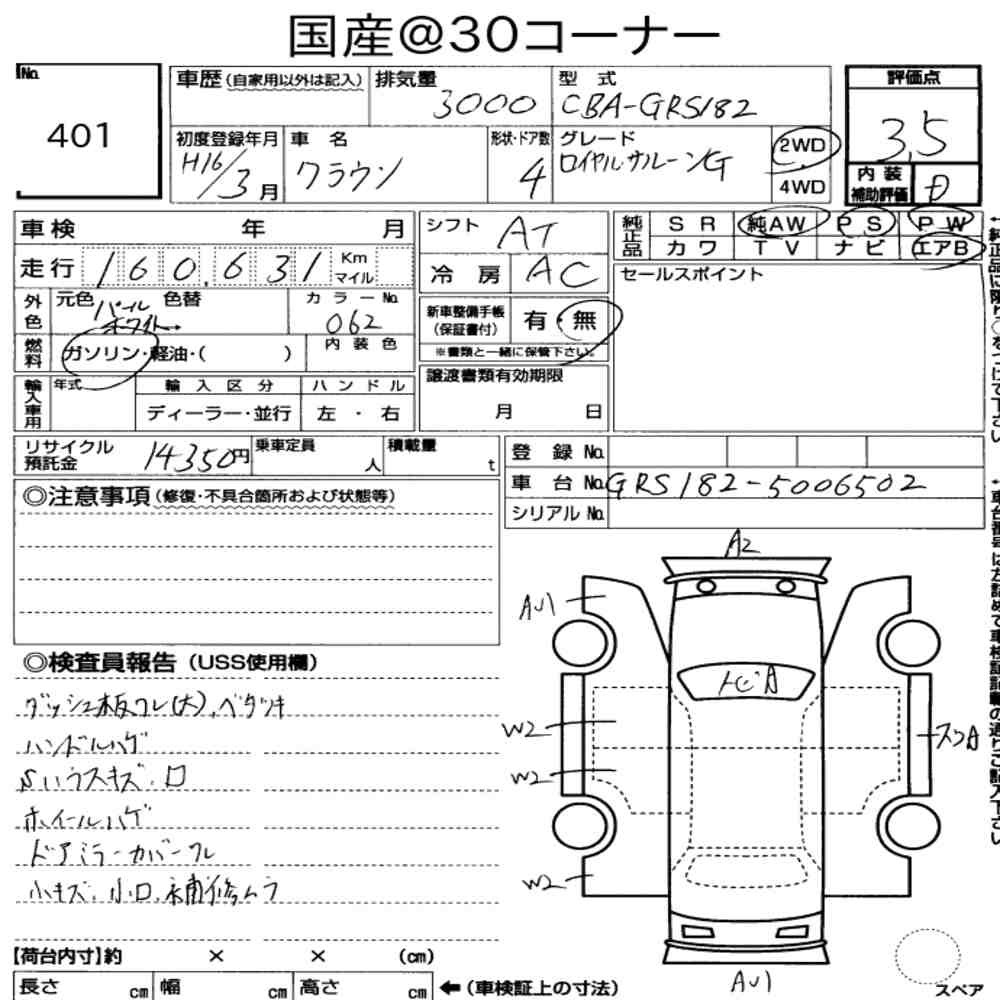 国産@30コーナー
No.
401
車歴（自家用以外は記入）
排気量
3000
型 式
CBA-GRS182
評価点
3.5
初度登録年月
H16/3月
車 名
クラウン
形状・ドア数
4
グレード
ロイヤルサルーンG
2WD
4WD
内装補助評価
D
車検 年 月
シフト AT
純正品
SR 純AW PS PW
カワ TV ナビ エアB
走行 160,631 Km マイル
冷房 AC
セールスポイント
外色
元色 パールホワイト 色替
カラーNo. 062
新車整備手帳（保証書付） 有・無
※書類と一緒に保管下さい。
燃料
ガソリン・軽油・（ ）
内装色
譲渡書類有効期限
月 日
輸入車用
年式
輸入区分
ハンドル
ディーラー・並行
左・右
リサイクル預託金 14350円
乗車定員 人
積載量 t
登録 No.
車台 No. GRS182-5006502
シリアル No.
◎注意事項（修復・不具合箇所および状態等）
◎検査員報告（USS使用欄）
ダッシュ板ワレ(大)、ベタツキ
ハンドルハゲ
Sハラスキズ、ロ
ホイールハゲ
ドアミラーカバーワレ
小キズ、小ロ、補修ムラ
A2
AU1
トビA
W2
W2
W2
スコA
AU1
【荷台内寸】約 × × （cm）
長さ cm 幅 cm 高さ cm ←（車検証上の寸法）
スペア
←純正品に限り○をつけて下さい
←車台番号は左詰めで車検証記載の通りご記入下さい